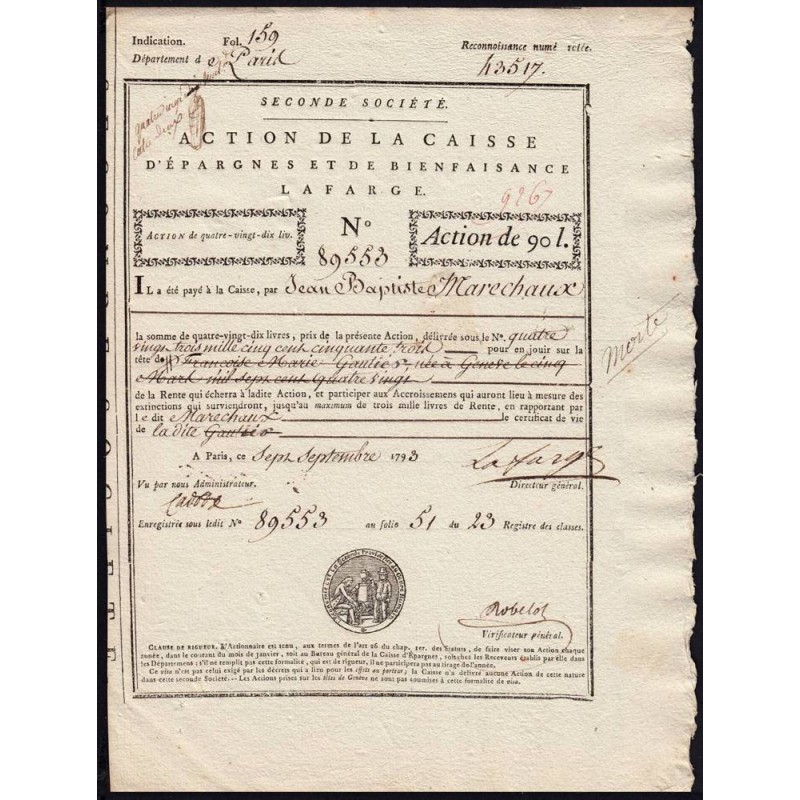 Indication. Fol. 159
Reconnoissance numérotée.
Département de Paris
43517.
SECONDE SOCIÉTÉ.
ACTION DE LA CAISSE
D'ÉPARGNES ET DE BIENFAISANCE
LAFARGE.
9267
ACTION de quatre-vingt-dix liv.
N° 89553
Action de 90 l.
IL a été payé à la Caisse, par Jean Baptiste Marechaux
la somme de quatre-vingt-dix livres, prix de la présente Action, délivrée sous le N°. quatre
vingt trois mille cinq cent cinquante trois pour en jouir sur la
tête de Francoise Marie Gautier née à Geneve le cinq
Mars mil sept cent quatre vingt
de la Rente qui écherra à ladite Action, et participer aux Accroissemens qui auront lieu à mesure des
extinctions qui surviendront, jusqu'au maximum de trois mille livres de Rente, en rapportant par
le dit Marechaux le certificat de vie
de la dite Gautier
A Paris, ce Sept Septembre 1793
Lafarge
Vu par nous Administrateur.
Directeur général.
Enregistrée sous ledit N° 89553 au folio 51 du 23 Registre des classes.
morte
Robelot
Vérificateur général.
CLAUSE DE RIGUEUR. L'Actionnaire est tenu, aux termes de l'art 26 du chap. 1er. des Statuts, de faire viser son Action chaque
année, dans le courant du mois de janvier, soit au Bureau général de la Caisse d'Épargnes, soit chez les Receveurs établis par elle dans
les Départemens; s'il ne remplit pas cette formalité, qui est de rigueur, il ne participera pas au tirage de l'année.
Ce visa n'est pas celui exigé par les décrets qui a lieu pour les effets au porteur; la Caisse n'a délivré aucune Action de cette nature
dans cette seconde Société.--Les Actions prises sur les têtes de Genève ne sont pas soumises à cette formalité de visa.